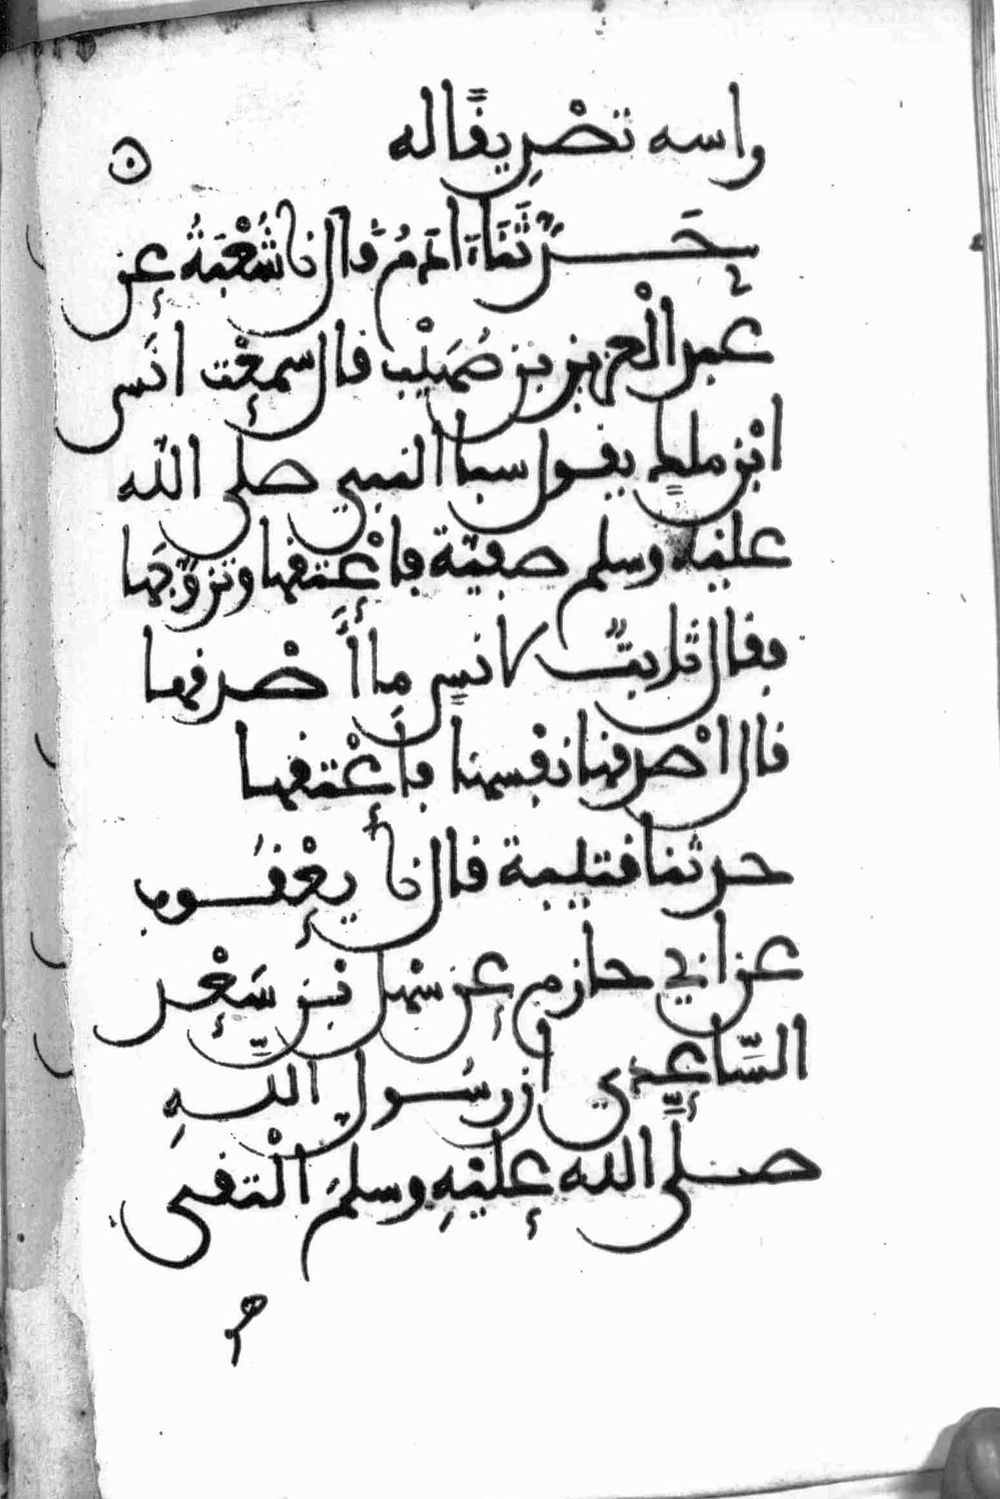 راسه تصْدِيقًا له
حَدَّثَنَا ءَادَمُ قَال نا شُعْبَةُ عن
عبد الْعزيز بن صُهَيْب قال سمعْت انَس
ابْن ملكٍ يقول سبا النبي صلى الله
عليْه وسلم صفيّة فاعْتقها وتزوّجَها
فقال ثابتٌ لانسٍ ما أَصْدقها
قال اصْدقها نفْسها فأَعْتقها
حدثنا قتيبة قال نا يعْقُوب
عن ابي حازم عن سَهْل بْن سَعْد
السَّاعدي ان رسُول اللهِ
صلى الله عليْهِ وسلمَ الْتقى
هو